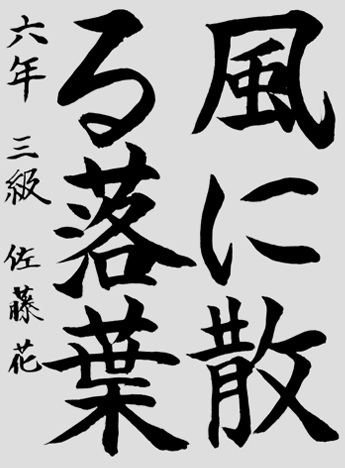 風に散
る落葉
六年 三級 佐藤花